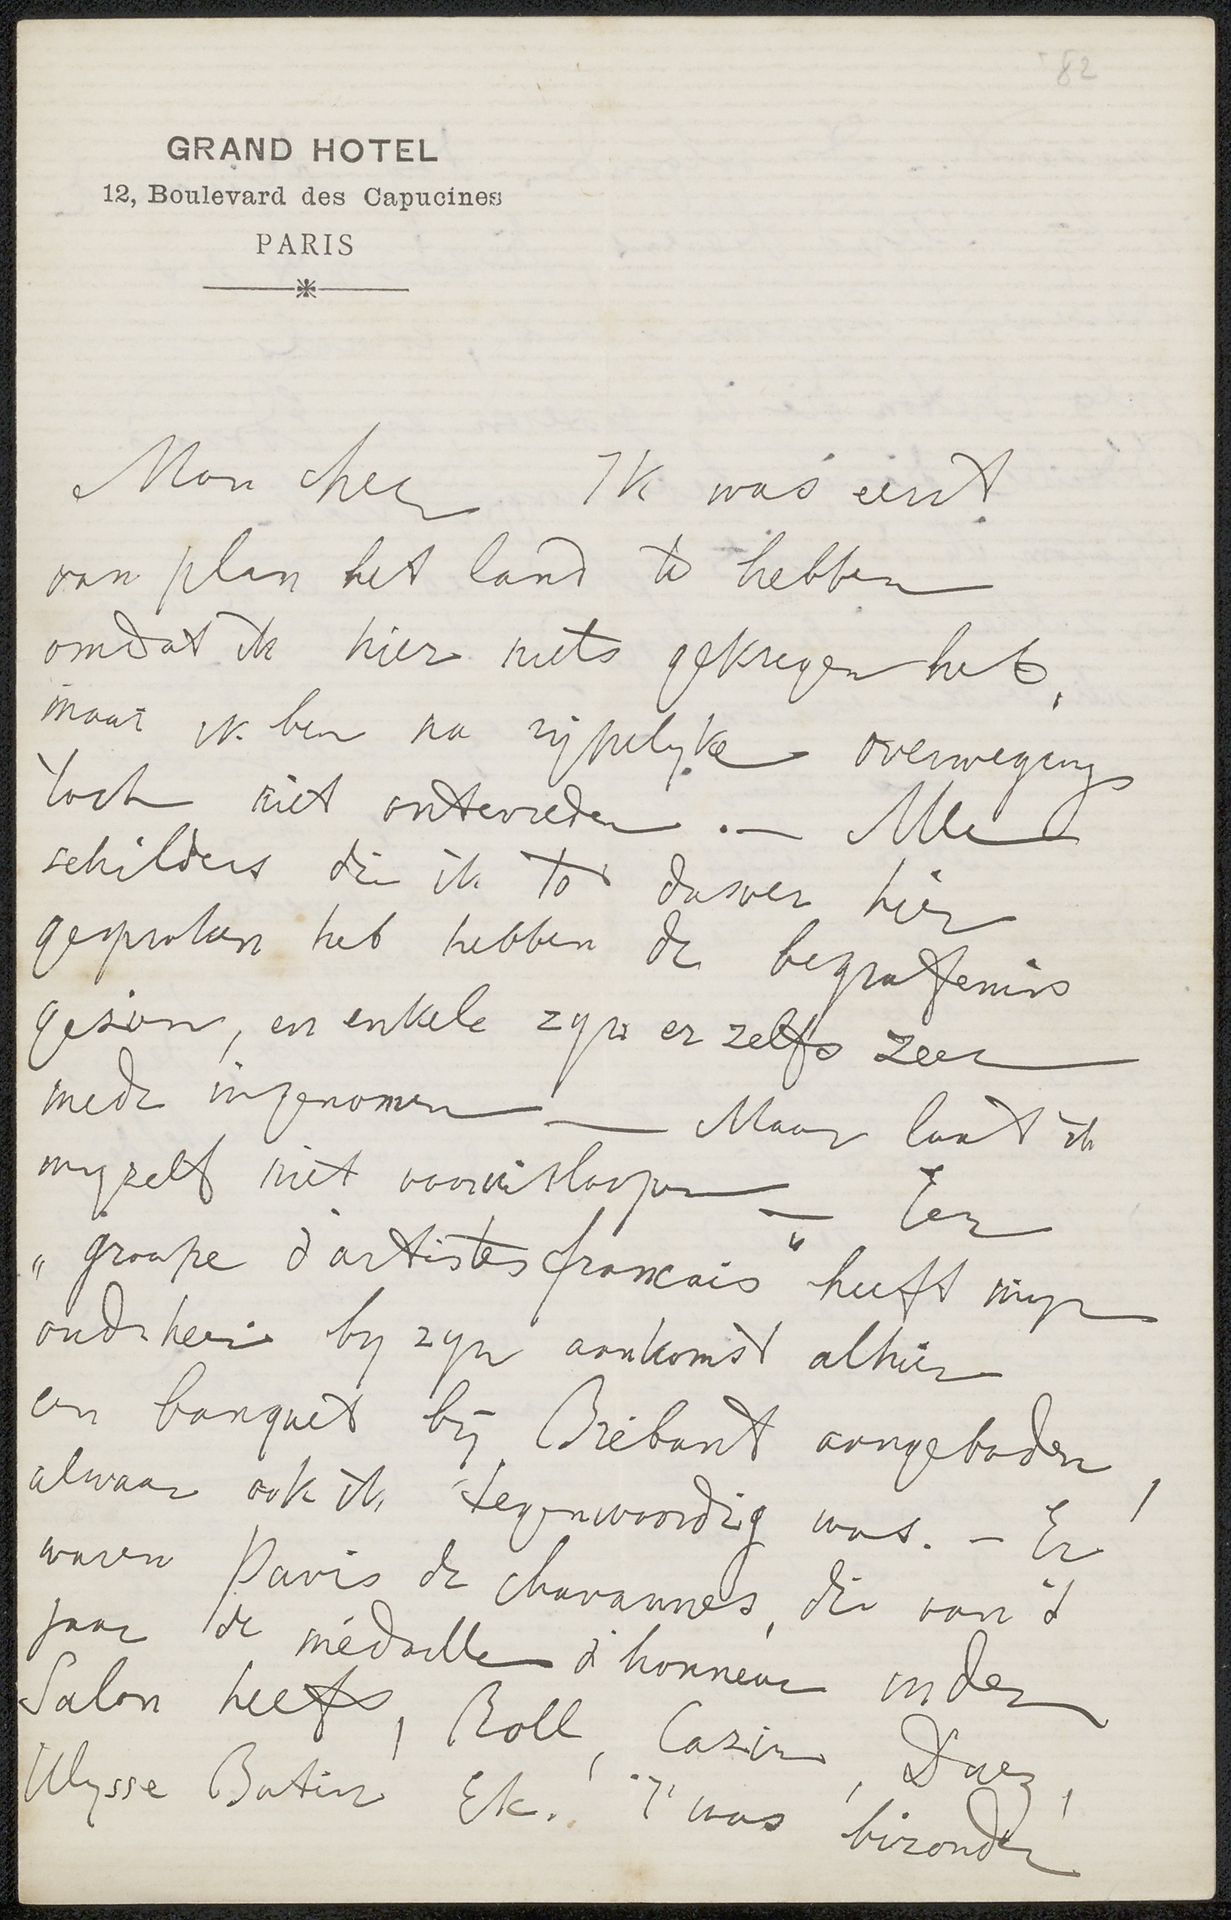 '82
GRAND HOTEL
12, Boulevard des Capucines
PARIS
Mon cher Ik was eerst
van plan het land te hebben
omdat ik hier niets gekregen heb,
maar ik ben na rijpelijke overweging
toch niet ontevreden. — Alle
schilders die ik tot dusver hier
gesproken heb hebben de begrafenis
gezien, en enkele zyn er zelfs zeer
mede ingenomen — Maar laat ik
myzelf niet vooruitloopen — Een
„groupe d'artistes francais" heeft myn
oudeheer by zyn aankomst alhier
een banquet bij Brébant aangeboden,
alwaar ook ik tegenwoordig was. — Er
waren Puvis de Chavannes, die van 't
jaar de médaille d'honneur in den
Salon heeft, Roll, Cazin, Duez,
Ulysse Butin Etc. 't was bizonder